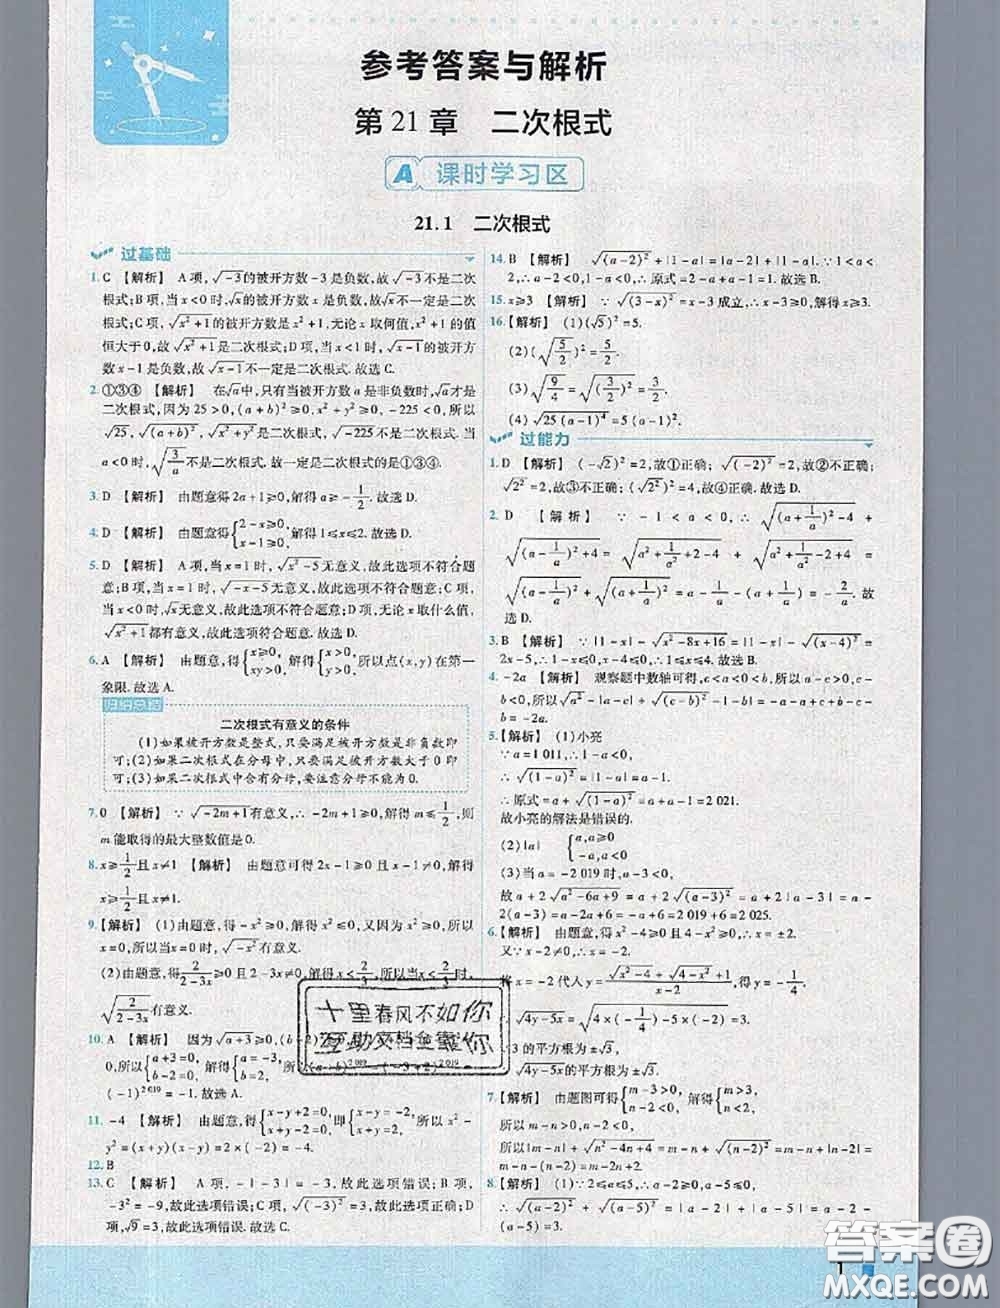 参考答案与解析
第21章 二次根式
A 课时学习区
21.1 二次根式
过基础
1.C 【解析】 A项,√-3的被开方数-3是负数,故√-3不是二次
根式;B项,当x<0时,√x的被开方数x是负数,故√x不一定是二次
根式;C项,√x²+1的被开方数x²+1,无论x取何值,x²+1的值
恒大于0,故√x²+1是二次根式;D项,当x<1时,√x-1的被开方
数x-1是负数,故√x-1不一定是二次根式.故选C.
2.①③④ 【解析】 在√a中,只有当被开方数a是非负数时,√a才是
二次根式,因为25>0,(a+b)²≥0,x²+y²≥0,-225<0,所以
√25,√(a+b)²,√x²+y²是二次根式,√-225不是二次根式.当
a<0时,√3/a不是二次根式.故一定是二次根式的是①③④.
3.D 【解析】 由题意得2a+1≥0,解得a≥-1/2.故选D.
4.D 【解析】 由题意得{2-x≥0, x-1≥0, 解得1≤x≤2.故选D.
5.D 【解析】 A项,当x=1时,√x²-5无意义,故此选项不符合题
意;B项,当x=1时,√-x-5无意义,故此选项不符合题意;C项,
当x=0时,无意义,故此选项不符合题意;D项,无论x取什么值,
√x²+1都有意义,故此选项符合题意.故选D.
6.A 【解析】 由题意,得{x≥0, xy>0, 解得{x>0, y>0, 所以点(x,y)在第一
象限.故选A.
归纳总结
二次根式有意义的条件
(1)如果被开方数是整式,只要满足被开方数是非负数即
可;(2)如果二次根式在分母中,只要满足被开方数大于0即
可;(3)如果二次根式中含有分母,要注意分母不能为0.
7.0 【解析】 ∵√-2m+1有意义,∴-2m+1≥0,解得m≤1/2,则
m能取得的最大整数值是0.
8.x≥1/2且x≠1 【解析】 由题意可得2x-1≥0且x-1≠0,解得
x≥1/2且x≠1.
9.【解析】 (1)由题意,得-x²≥0,解得x²≤0,又因为x²≥0,所以x=
0,所以当x=0时,√-x²有意义.
(2)由题意,得2/2-3x≥0且2-3x≠0,解得x<2/3,所以当x<2/3时,
√2/2-3x有意义.
10.A 【解析】 因为√a+3≥0,
0,所以{a+3=0, b-2=0, 解得{a=-3, b=2,
(-1)²⁰¹⁹=-1.故选A.
11.-4 【解析】 由题意,得{x-y+2=0, x+y-2=0, 即{x-y=-2, x+y=2, 所以x²-
y²=(x+y)(x-y)=2×(-2)=-4.
12.B
13.C 【解析】 A项,-|-3|=-3,故此选项错误;B项,-3²=
-9,故此选项错误;C项,√(-3)²=3,故此选项正确;D项,
√9=3,故此选项错误.故选C.
14.B 【解析】 √(a-2)²+|1-a|=|a-2|+|1-a|.∵1<a<
2,∴a-2<0,1-a<0,∴原式=2-a+a-1=1.故选B.
15.x≥3 【解析】 ∵√(3-x)²=x-3成立,∴x-3≥0,解得x≥3.
16.【解析】 (1)(√5)²=5.
(2)(√5/2)²=5/2.
(3)√9/4=√(3/2)²=3/2.
(4)√25(a-1)⁴=5(a-1)².
过能力
1.D 【解析】 (-√2)²=2,故①正确;√(-2)²=2,故②不正确;
√2²=2,故③不正确;(√2²)²=4,故④正确.故选D.
2.D 【解析】 ∵-1<a<0,∴√(a+1/a)²-4+
√(a-1/a)²+4=√a²+1/a²+2-4+√a²+1/a²-2+4=
√(a-1/a)²+√(a+1/a)²=a-1/a-(a+1/a)=-2/a.故
选D.
3.B 【解析】 ∵|1-x|-√x²-8x+16=|1-x|-√(x-4)²=
2x-5,∴1-x≤0,x-4≤0,∴1≤x≤4.故选B.
4.-2a 【解析】 观察题中数轴可得,c<a<0<b,所以a-c>0,c-
b<0,所以√a²-|a-c|+√(c-b)²-|-b|=-a-a+c+b-c-b
=-2a.
5.【解析】 (1)小亮
∵a=1 011,∴1-a<0,
∴√(1-a)²=|1-a|=a-1,
∴原式=a+√(1-a)²=a+a-1=2a-1=2 021.
故小亮的解法是错误的.
(2)|a| {a,a≥0 -a,a<0
(3)当a=-2 019时,a-3<0,
故a+2√a²-6a+9=a+2√(a-3)²=a+2|a-3|=a-
2(a-3)=a-2a+6=-a+6=2 019+6=2 025.
6.【解析】 由题意,得x²-4≥0且4-x²≥0,∴x=±2.
又∵x-2≠0,∴x=-2.
将x=-2代入y=√x²-4+√4-x²+1/x-2,得y=-1/4.
√4y-5x=√9=3,
3的平方根为±√3,
∴√4y-5x的平方根为±√3.
7.【解析】 由题图可得{m-3>0, n-2<0, 解得{m>3, n<2,
所以m-n>0,n-2<0,
所以|m-n|+√n²-4n+4=m-n+√(n-2)²=m-n+|n-2|=
m-n-(n-2)=m-2n+2.
8.【解析】 (1)∵2≤a≤5,∴√(a-2)²+√(a-5)²=a-2-
(a-5)=3.
十里春风不如你
互助文档
1
答案圈
MXQE.COM